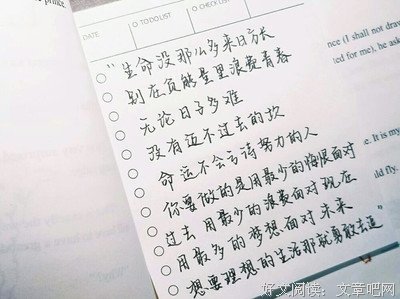 prince.
DATE
O TO DO LIST
O CHECK LIST
"生命没那么多来日方长
别在负能量里浪费青春
无论日子多难
没有迈不过去的坎
命运不会亏待努力的人
你要做的是用最少的悔恨面对
过去 用最少的浪费面对现在
用最多的梦想面对未来
想要理想的生活那就勇敢去追"
nce (I shall not draw
ed for me), he aske
e. It is my
ld fly.
好文阅读：文章吧网